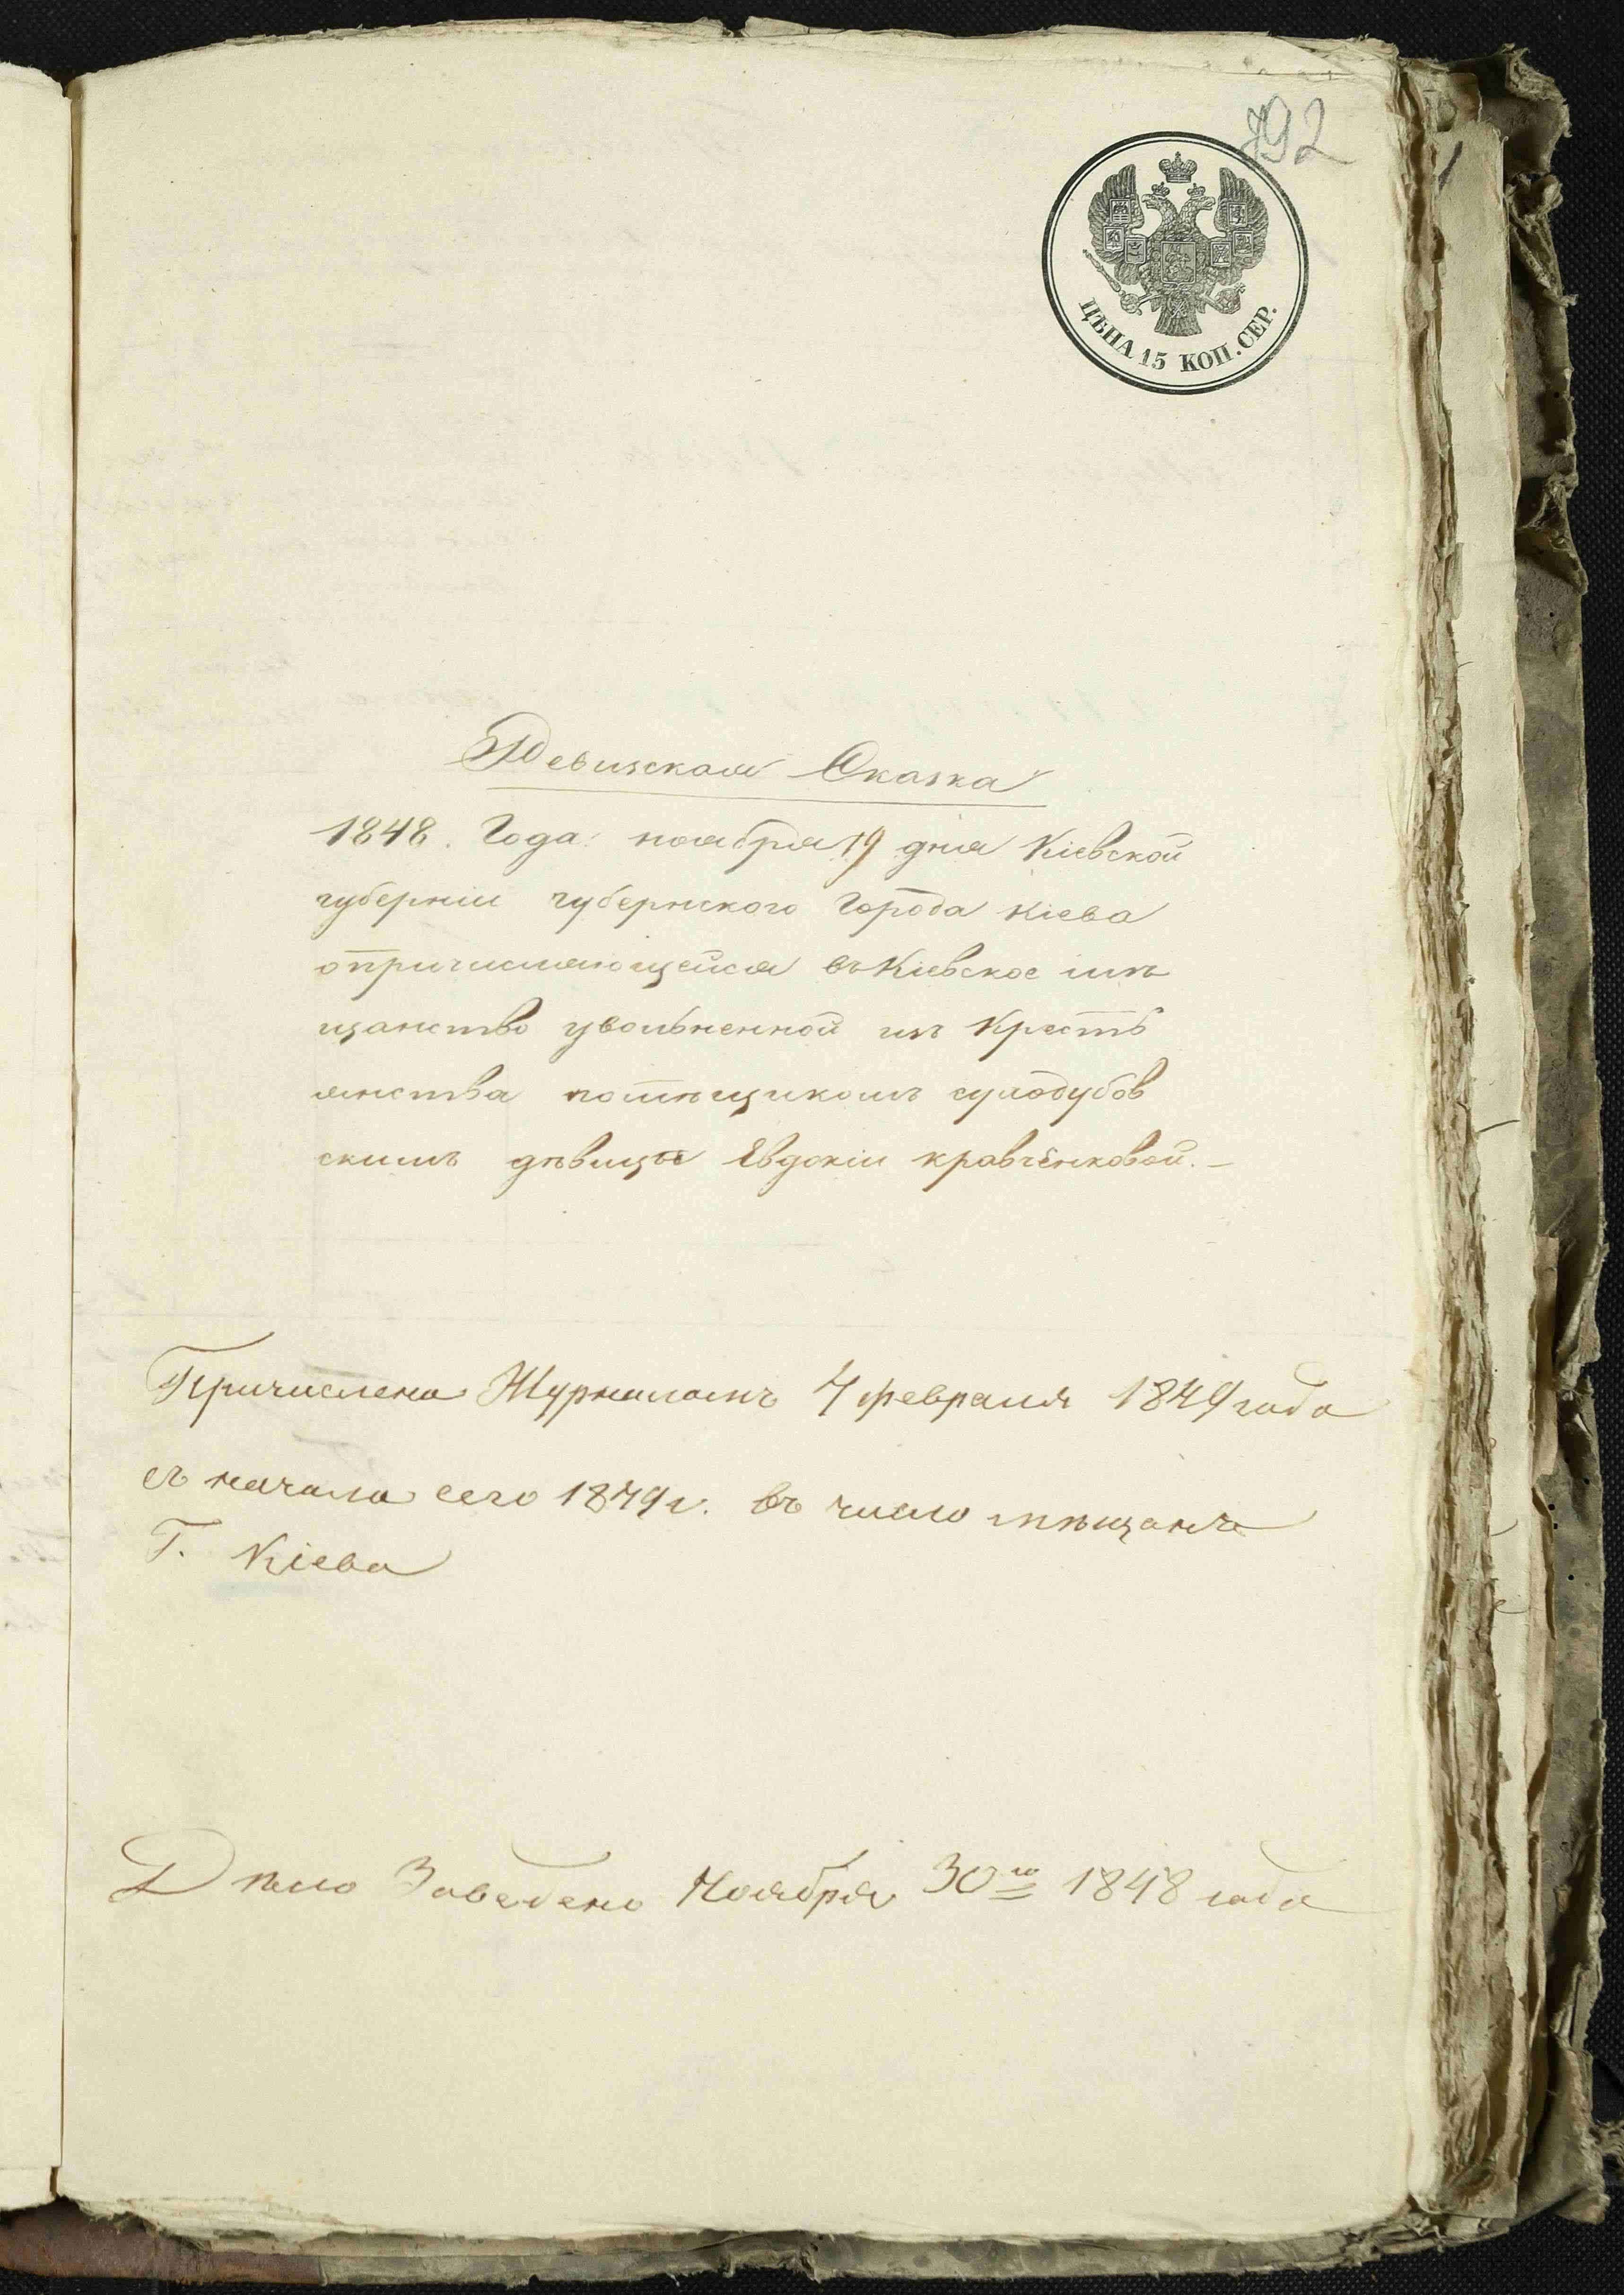 792
ЦѢНА 15 КОП. СЕР.
Ревизская Сказка
1848. Года ноября 19 дня Кіевской
губерніи губернского Города Кіева
опричисляющейся въ Кіевское мѣ
щанство увольненной изъ Кресть
янства помѣщикомъ
скимъ дѣвицы Евдокіи кравченковой. –
Причислена Журналомъ 4 февраля 1849 года
съ начала сего 1849 г. въ число мѣщанъ
Г. Кіева
Дѣло Заведено Ноября 30го 1848 года